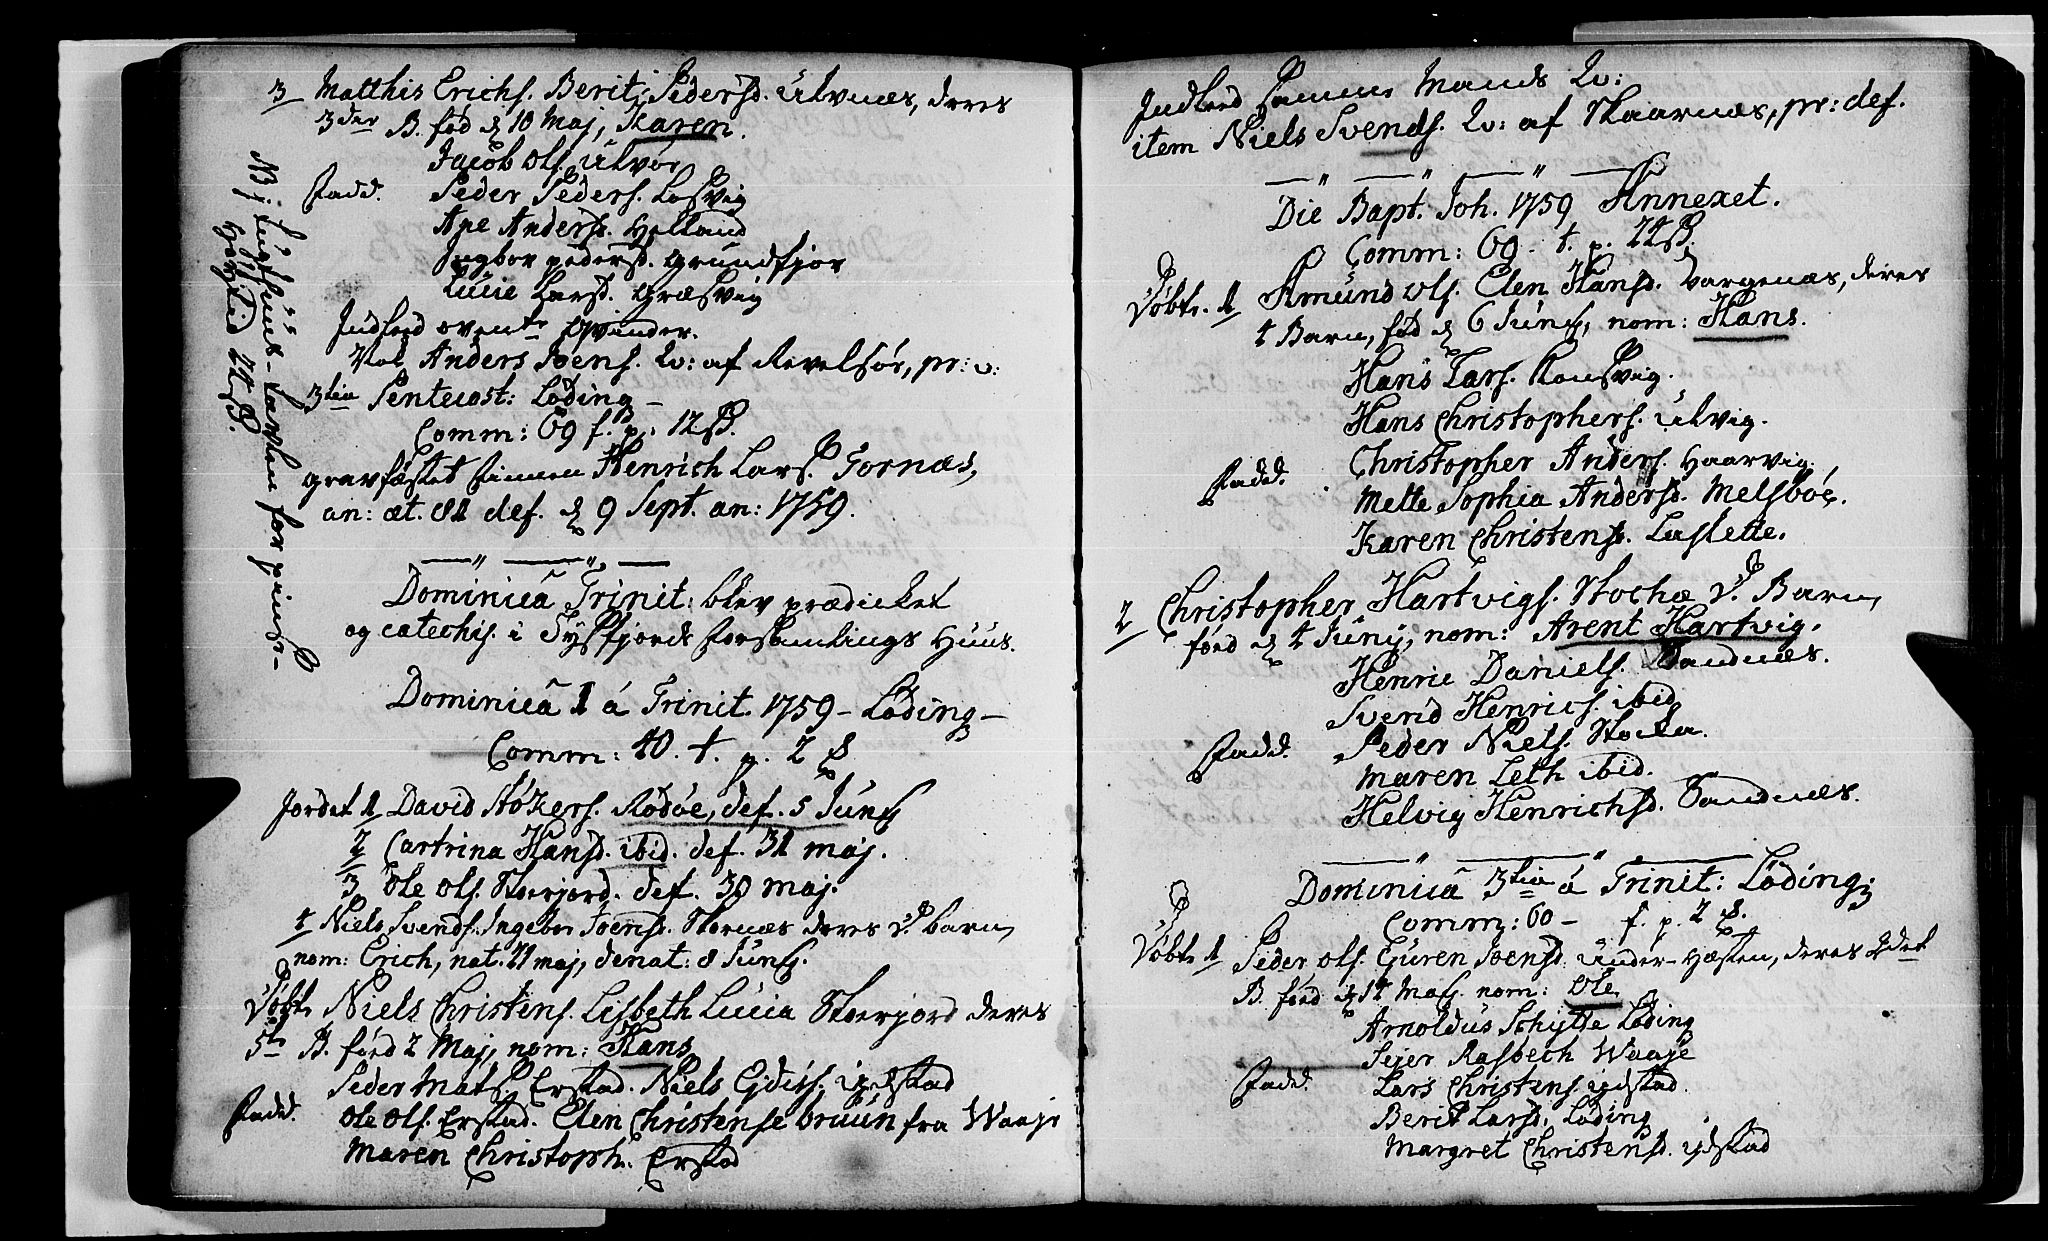 3 Matthis Erichs. Berit Pedersd. Ulvnæs, deres
3die B. fød d. 10 Maj, Karen.
Jacob Ols. Ulvør
Fadd. Peder Peders. Løsvig
Ane Andersd. Holland
Ingbor pedersd. Grundfjor
Lucie Larsd. Græsvig
Indleed ovente Qvinder.
Vol Anders Joens. Qv: af Revelsør, pr: v:
3tia Pentecost: Løding -
Comm: 69 f. p: 12 ß.
gravfæstet Simen Henrich Lars. Tornæs,
an: æt. 81 def. d. 9 Sept. an: 1759.
NB: Tugthuus-Tavlen for pints-
Høytid 24 ß.
Dominica Trinit: blev prædicket
og catechis. i Tysfjords Forsamlings Huus.
Dominica 1 á Trinit. 1759 - Løding -
Comm: 40. t. p. 2 ß
Jordet 1 David Stokers. Rødøe, def. 5 Junij
2 Cartrina Hansd. ibid. def. 31 maj.
3 Ole Ols. Storjord. def. 30 maj.
4 Niels Svends. Ingebor Joensd. Skornæs deres d. barn
nom: Erich, nat. 21 maj, denat: 8 Junij.
Døbt Niels Christens. Lisbeth Lucia Storjord deres
5te B. født 2 Maj, nom: Hans
Peder Mats. Erstad. Niels Ejdiss. ipstad
Fadd. Ole Ols. Erstad. Elen Christense bruun fra Waaje
Maren Christoph. Erstad
Indleed samme Mands Qv:
item Niels Svends. Qv: af Skaarnæs, pr: def.
Die Bapt. Joh. 1759 Annexet.
Comm: 69 - t. p. 24 ß.
Døbte. 1 Amund Ols. Elen Hansd. Vargenæs, deres
4 Barn, fød d. 6 Junij, nom: Hans.
Hans Lars. Konsvig.
Hans Christophers. Ulvig.
Christopher Anders. Haarvig
Fadd. Mette Sophia Andersd. Melsbøe.
Karen Christensd. Laslette.
2 Christopher Hartvigs. Stochæ d. Barn
førd d. 4 Junij, nom: Arent Hartvig.
Henric Daniels. Sandnæs.
Sverid Henrics. ibid
Fadd. Peder Niels. Stocka.
Maren Leth ibid.
Helvig Henrichsd. Sandnæs.
Dominica 3tia á Trinit: Løding;
Comm: 60 - f. p. 2 ß.
Døbt 1 Peder Ols. Guren Joensd. under-Hæsten, deres 2det
B. førd d. 14 Maj. nom: Ole
Arnoldus Schytte Løding
Sejer Rasbech Waaje
Fadd. Lars Christens ipstad.
Berit Larsd. Løding
Margret Christensd. ipstad